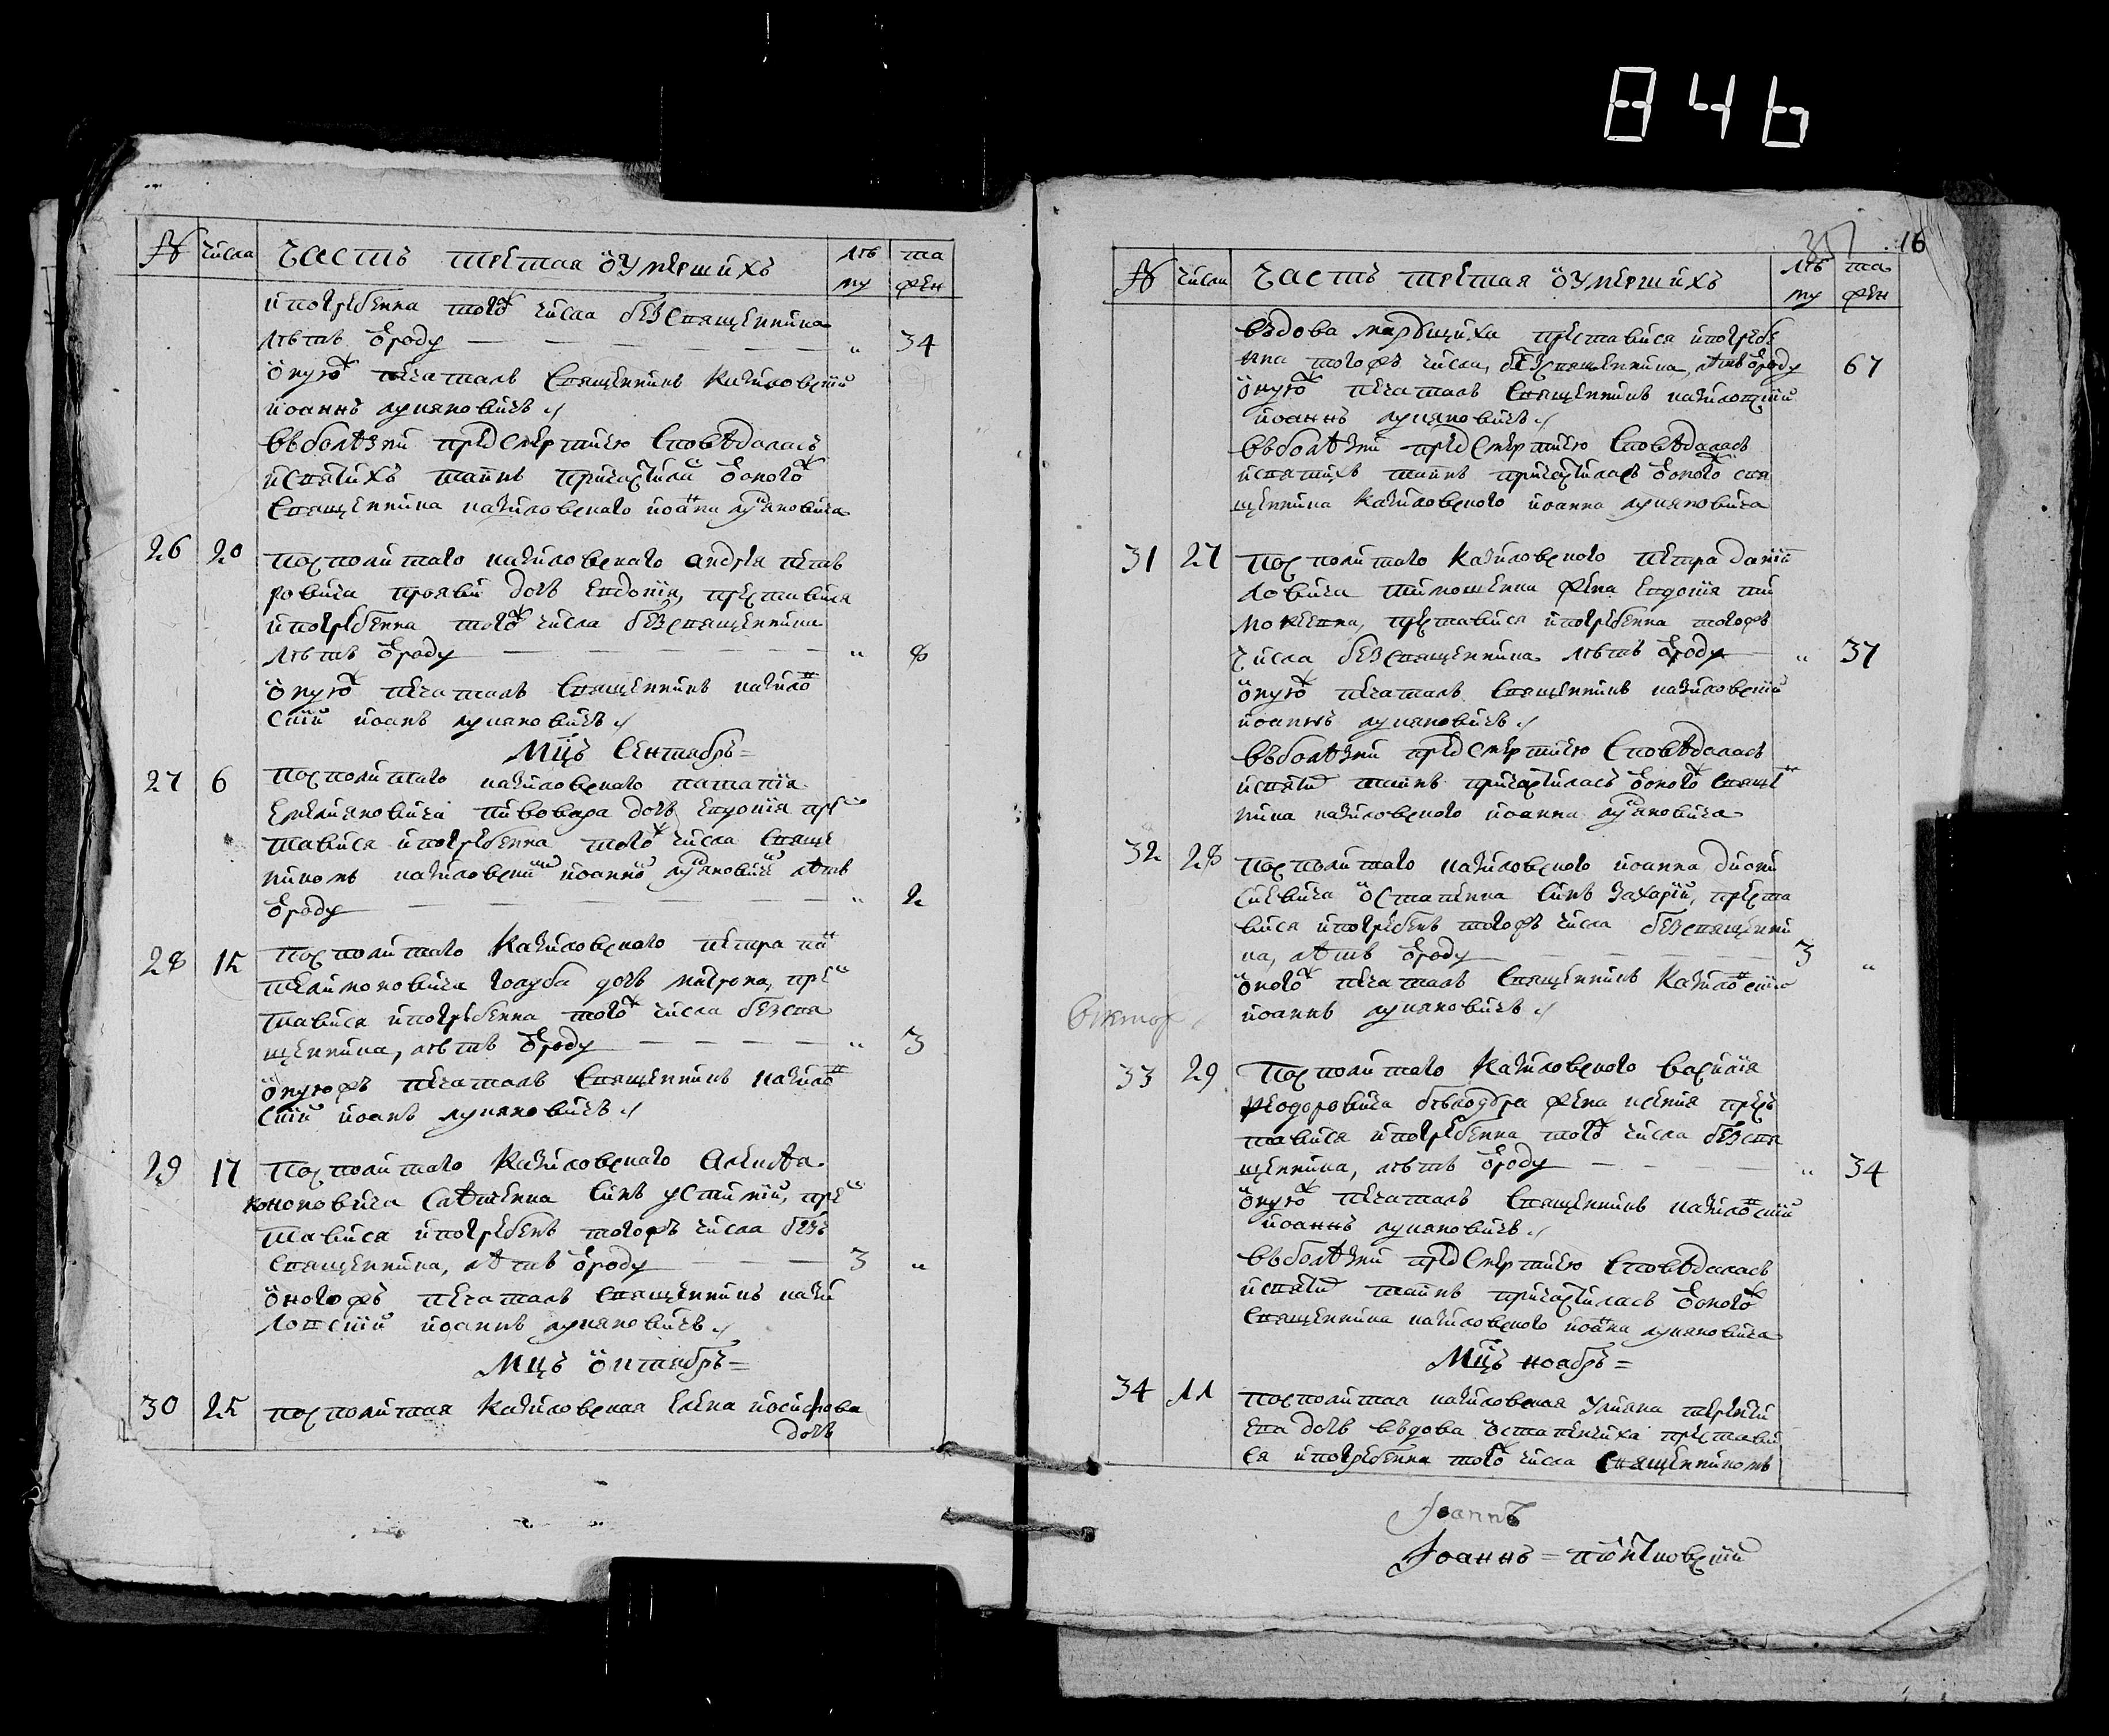 846
№ числа Часть третая ѡ умершихъ лѣ та
му жен
и погребенна того ж числа без священника
лѣтъ ѿ роду — „ 34
ѡную ж печаталъ священникъ качковский
иоаннъ лукяновичъ
въ болѣзни пред смертию сповѣдалась
и святихъ таинъ причастила ѿ оного ж
священника качковского иоанна лукяновича
26 20 посполитого качковского андрея пет
ровича дочь евдокия, преставися
и погребенна того ж числа без священника
лѣтъ ѿ роду — „ 8
ѡную ж печаталъ священникъ качков
ский иоанъ лукяновичъ
Мцъ сентябръ =
27 6 посполитого качковского
емелияновича пивовара дочь евдокия прес
тавися и погребенна того ж числа священ
никомъ качковским иоанном лукяновичем лѣтъ
ѿ роду — „ 2
28 15 посполитого качковского петра пан
телимоновича голуба дочь матрона, прес
тавися и погребенна того ж числа без свя
щенника, лѣтъ ѿ роду — „ 3
ѡную жъ печаталъ священникъ качков
ский иоанъ лукяновичъ
29 17 посполитого качковского алексѣя
кононовича синъ устимий, прес
тавися и погребенъ того жъ числа безъ
священника, лѣтъ ѿ роду — 3 „
ѡного жъ печаталъ священникъ качк
ловский иоаннъ лукяновичъ
Мцъ ѡктябръ =
30 25 посполитая качковская елена иосифова
дочь
357 16
№ числа Часть третая ѡ умершихъ лѣ та
му жен
въдова преставися и погребе
нна того жъ числа, без священника, лѣтъ ѿ роду 67
ѡную ж печаталъ священникъ качковский
иоаннъ лукяновичъ
въ болѣзни пред смертию сповѣдалась
и святихъ таинъ причастилась ѿ оного ж свя
щенника качковского иоанна лукяновича
31 27 посполитого качковского петра дании
ловича тимошенка жена евдокия ти
мофеевна, преставися и погребенна того жъ
числа без священника лѣтъ ѿ роду — „ 37
ѡную ж печаталъ священникъ качковский
иоаннъ лукяновичъ
въ болѣзни пред смертию сповѣдалась
и святих таинъ причастилась ѿ оного ж священ
ника качковского иоанна лукяновича
32 28 посполитого качковского иоанна диони
сиевича ѡстапенка синъ захарий, преста
вися и погребенъ того жъ числа без священни
ка, лѣтъ ѿ роду — 3 „
ѡного ж печаталъ священникъ качковский
иоаннъ лукяновичъ
33 29 посполитого качковского василия
феодоровича жена ксения прес
тавися и погребенна того ж числа без свя
щенника, лѣтъ ѿ роду — „ 34
ѡную ж печаталъ священникъ качковский
иоаннъ лукяновичъ
въ болѣзни пред смертию сповѣдалась
и святих таинъ причастилась ѿ оного ж
священника качковского иоанна лукяновича
Мцъ ноябръ =
34 11 посполитая качковская улияна терентий
ева дочь въдова ѡстапенчиха преставй
ся и погребенна того ж числа священникомъ
Іоаннъ
Іоаннъ =